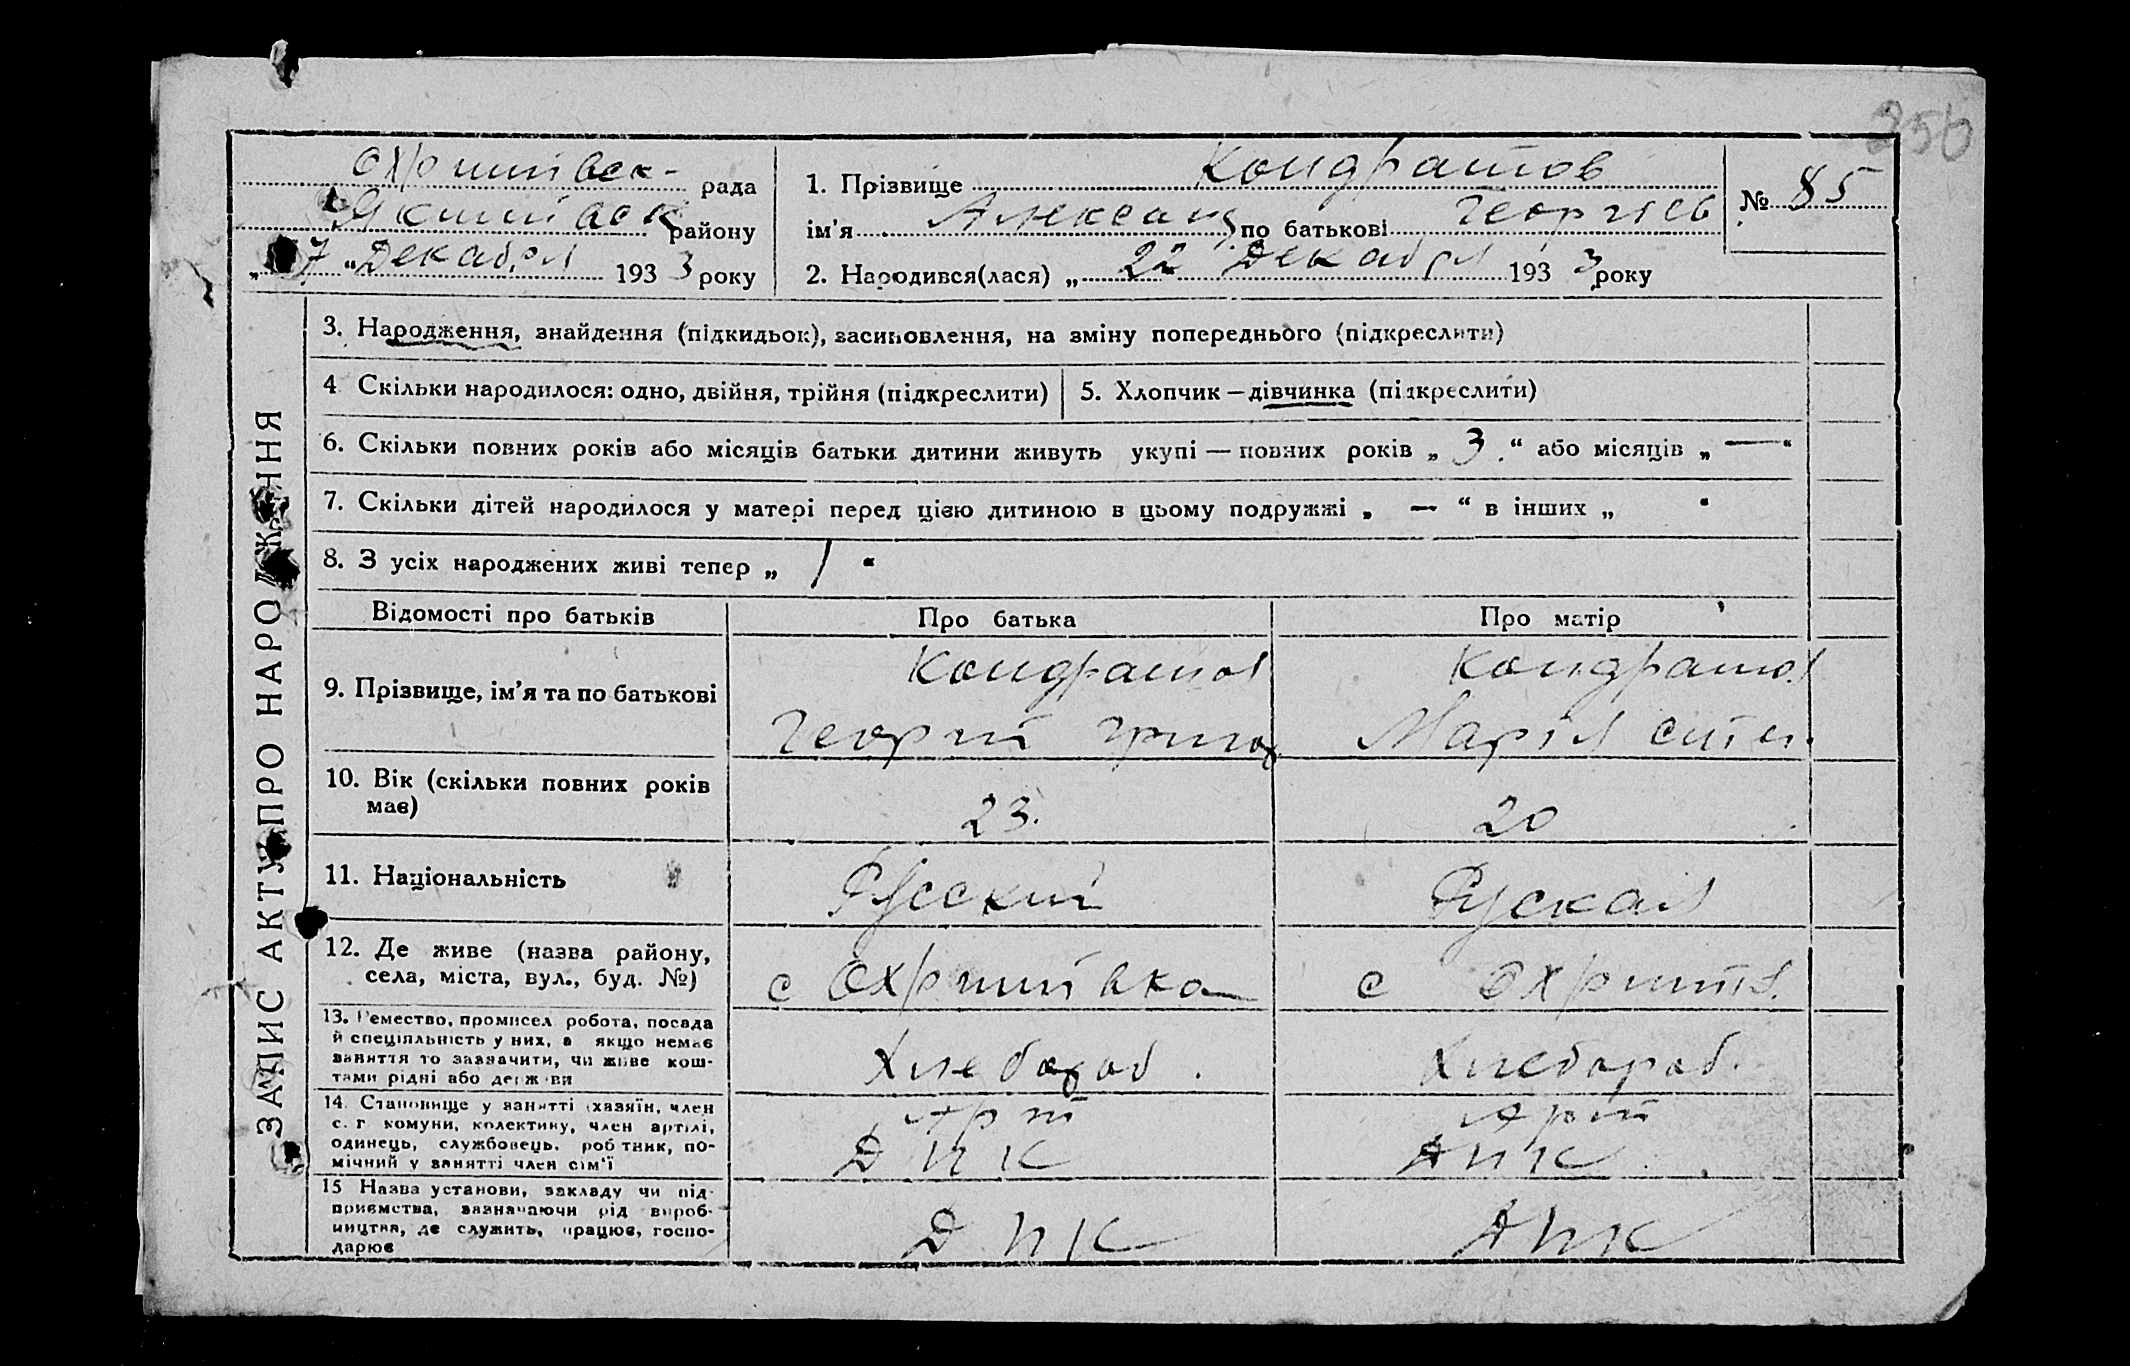 356
Охримівск- рада
Якимівск району
„ 7 “ Декабря 193 3 року
1. Прізвище Кондратов
ім’я Александ. по батькові Георгіев
2. Народився(лася) „ 22 Декабря 193 3 року
№ 85
ЗАПИС АКТУ ПРО НАРОДЖЕННЯ
3. Народження, знайдення (підкидьок), засиновлення, на зміну попереднього (підкреслити)
4 Скільки народилося: одно, двійня, трійня (підкреслити) 5. Хлопчик — дівчинка (підкреслити)
6. Скільки повних років або місяців батьки дитини живуть укупі — повних років „ 3. “ або місяців „ — “
7. Скільки дітей народилося у матері перед цією дитиною в цьому подружжі „ — “ в інших „ “
8. З усіх народжених живі тепер „ 1 “
Відомості про батьків Про батька Про матір
9. Прізвище, ім’я та по батькові
Кондратов Кондратов
Георгій Григор Марія
10. Вік (скільки повних років
має)
23. 20
11. Національність Русский Руская
12. Де живе (назва району,
села, міста, вул., буд. №)
с Охримівка с Охримів.
13. Ремество, промисел робота, посада
й спеціяльність у них, а якщо немає
заняття то зазначити, чи живе кош-
тами рідні або держави
Хлебороб. Хлебороб.
14. Становище у занятті (хазяїн, член
с. г комуни, колективу, член артілі,
одинець, службовець, робітник, по-
мічний у занятті член сім’ї
Арт Арт
ДПК ДПК
15 Назва установи, закладу чи під-
приємства, зазначаючи рід вироб-
ництва, де служить, працює, госпо-
дарює
ДПК ДПК